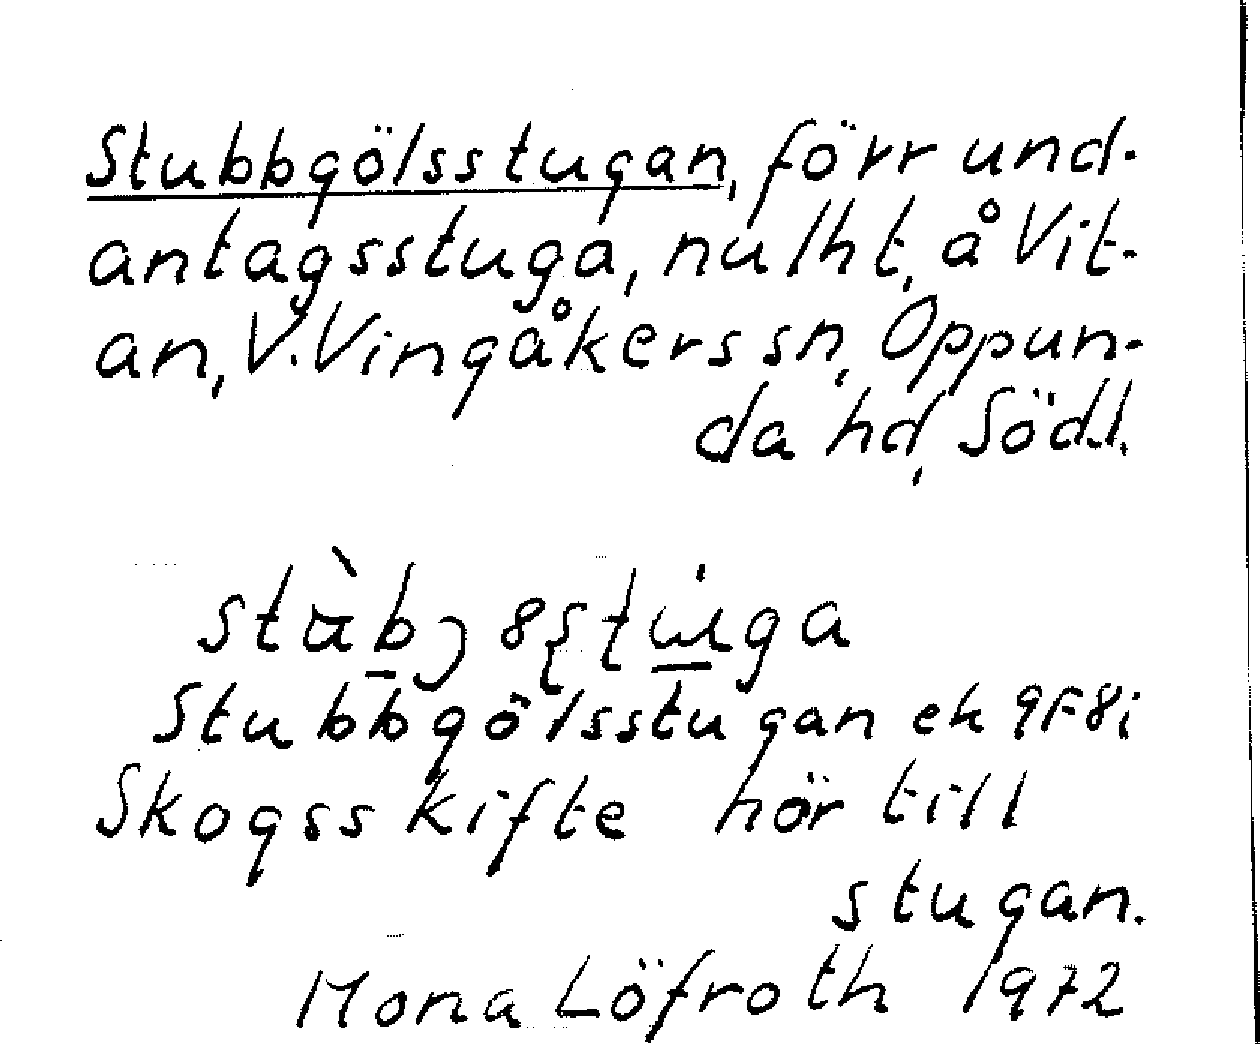 Stubbgölsstugan, förr und-
antagsstuga, nu lht, å Vit-
an, V. Vingåkers sn, Oppun-
da hd, Södl.
Stubbgölsstugan ek 9F8i
Skogsskifte hör till
stugan.
Mona Löfroth 1972